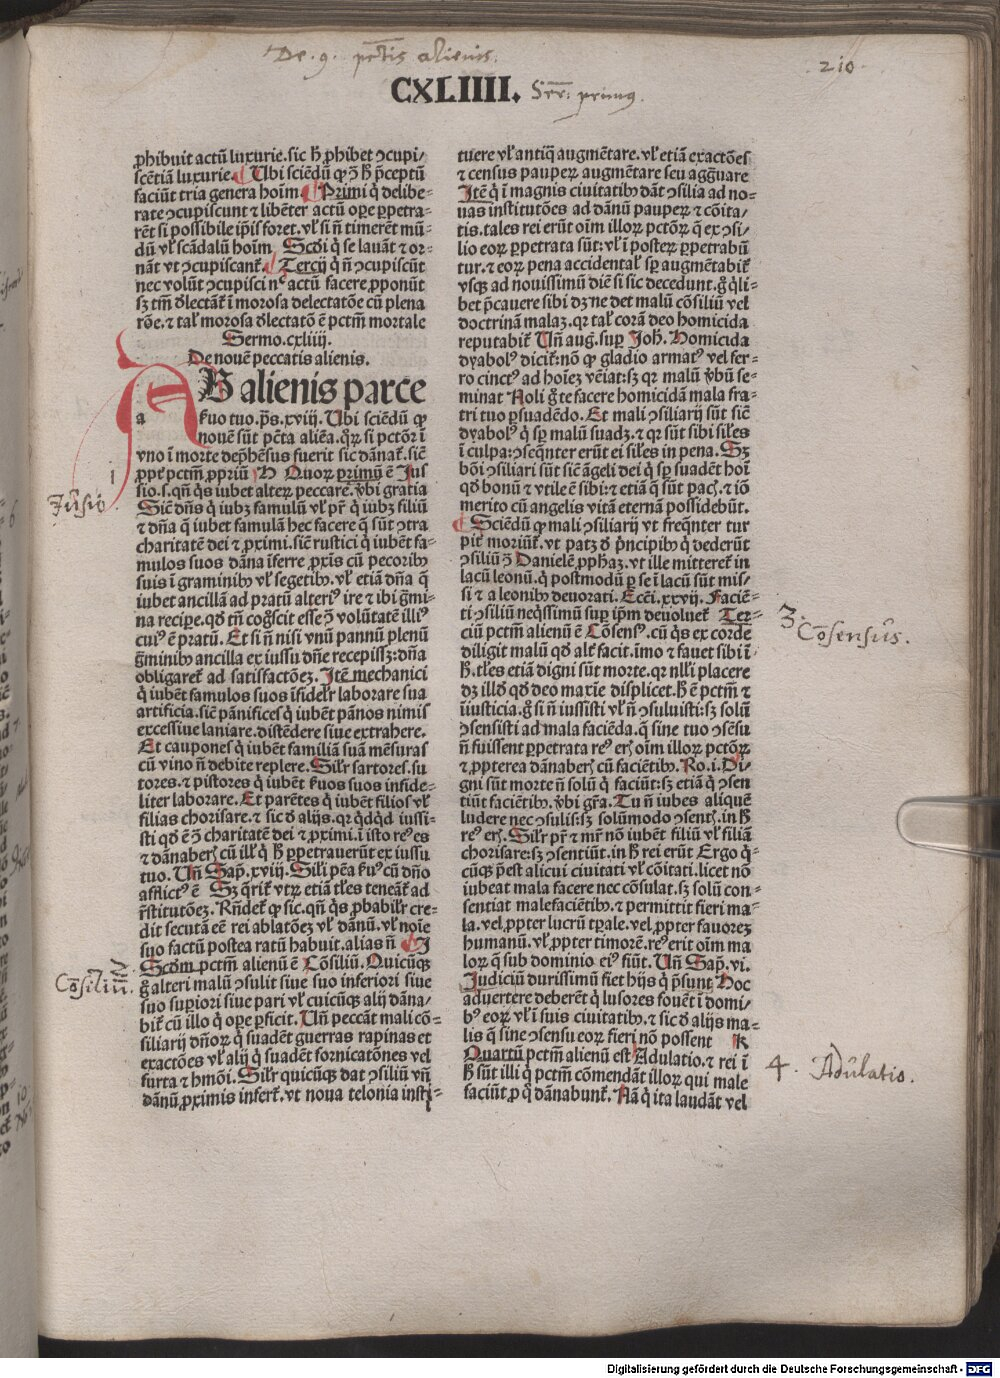 De .9. pctis alienis.
210
CXLIIII. Ser: primus.
ꝓhibuit actū luxurie. sic h̄ ꝓhibet ↄcupi⸗
scētiā luxurie. Ubi sciēdū ꝙ ꝯ h̄ p̄ceptū
faciūt tria genera hoīm. Primi q̇ delibe⸗
rate ↄcupiscunt ⁊ libēter actū oꝑe ꝑpetra⸗
rēt si possibile ip̄is foret. vl̓ si n̄ timerēt mū⸗
dū vl̓ scādalū hoīm Scd̓i q̇ se lauāt ⁊ or⸗
nāt vt ↄcupiscant̄. Tercij q̇ n̄ ↄcupiscūt
nec volūt ↄcupisci nec̄ actū facere ꝓponūt
sꝫ tm̄ d̓lectāt̄ ī morosa delectatōe cū plena
rōe. ⁊ tal̓ morosa d̓lectatō ē pctm̄ mortale
Sermo. cxliiij.
De nouē peccatis alienis.
AB alienis parce
a ẜuo tuo. ps̄. xviij. Ubi sciēdū ꝙ
nouē sūt pctā aliēa. q̄ꝝ si pctōr ī
vno ī morte dep̄hēsus fuerit sic dānat̄. siē
ꝓpt̓ pctm̄ ꝓpriū H Quoꝝ primū ē Jus
sio. s. qn̄ q̇s iubet alteꝝ peccare. v̓bi gratia
Siē dn̄s q̇ iubꝫ famulū vl̓ pr̄ q̇ iubꝫ filiū
⁊ dn̄a q̄ iubet famulā hec facere q̄ sūt ↄtra
charitatē dei ⁊ ꝓximi. siē rustici q̇ iubēt fa⸗
mulos suos dāna īferre ꝓxīs cū pecoribꝰ
suis ī graminibꝰ vl̓ segetibꝰ. vl̓ etiā dn̄a q̄
iubet ancillā ad pratū alteriꝰ ire ⁊ ibi ḡmi⸗
na recipe. qd̓ tn̄ cog̊scit esse ꝯ volūtatē illiꝰ
cuiꝰ ē pratū. Et si n̄ nisi vnū pannū plenū
ḡminibꝰ ancilla ex iussu dn̄e recepissꝫ: dn̄a
obligaret̄ ad satisfactōeꝫ. Itē mechanici
q̇ iubēt famulos suos īfidelr̄ laborare sua
artificia. siē pānifices q̇ iubēt pānos nimis
excessiue laniare. distēdere siue extrahere.
Et caupones q̇ iubēt familiā suā mēsuras
cū vino n̄ debite replere. Silr̄ sartores. su
tores. ⁊ pistores q̇ iubēt ẜuos suos infide⸗
liter laborare. Et parētes q̇ iubēt filios vl̓
filias chorisare. ⁊ sic d̓ alijs. qr qd̓qd̓ iussi⸗
sti qd̓ ē ꝯ charitatē dei ⁊ ꝓximi. ī isto reꝰ es
⁊ dānaberꝭ cū ill̓ q̇ h̄ ꝑpetrauerūt ex iussu
tuo. Un̄ Sap̄. xviij. Sili pēa ẜuꝰ cū dn̄o
afflictꝰ ē Sꝫ q̄rit̄ vtꝝ etiā tl̄es teneāt̄ ad
r̄stitutōeꝫ. Rn̄det̄ ꝙ sic. qn̄ q̇s ꝓbabilr̄ cre⸗
dit secutā eē rei ablatōeꝫ vl̓ dānū. vl̓ noīe
suo factū postea ratū habuit. alias n̄ J
Scd̓m pctm̄ alienū ē Cōsiliū. Quicūqꝫ
g̊ alteri malū ↄsulit siue suo inferiori siue
suo superiori siue pari vl̓ cuicūqꝫ alij dāna⸗
bit̄ cū illo q̇ oꝑe ꝑficit. Un̄ peccāt mali cō⸗
siliarij dn̄oꝝ q̇ suadēt guerras rapinas et
exactōes vl̓ alij q̇ suadēt fornicatōnes vel
furta ⁊ hmōi. Silr̄ quicūqꝫ dat ↄsiliū vn̄
dānū ꝓximis infert̄. vt noua telonia insti⸗
tuere vl̓ antiq̄ augmētare. vl̓ etiā exactōes
⁊ census pauperꝝ augmētare seu agg̊uare
Itē q̇ ī magnis ciuitatibꝰ dāt ↄsilia ad no⸗
uas institutōes ad dānū pauperꝝ ⁊ cōita⸗
tis. tales rei erūt oīm illoꝝ pctōꝝ q̄ ex ↄsi⸗
lio eoꝝ ꝑpetrata sūt: vl̓ ī posteꝝ ꝑpetrabū
tur. ⁊ eoꝝ pena accidental̓ sp̄ augmētabit̄
vsqꝫ ad nouissimū diē si sic decedunt. g̊ q̇li⸗
bet p̄cauere sibi dꝫ ne det malū cōsiliū vel
doctrinā malaꝫ. qr tal̓ corā deo homicida
reputabit̄ Un̄ aug. suꝑ Joh̄. Homicida
dyabolꝰ dicit̄: nō ꝙ gladio armatꝰ vel fer⸗
ro cinctꝰ ad hoīeꝫ vēiat: sꝫ qr malū v̓bū se⸗
minat Noli g̊ te facere homicidā mala fra⸗
tri tuo ꝑsuadēdo. Et mali ↄsiliarij sūt siē
dyabolꝰ q̇ sp̄ malū suadꝫ. ⁊ qr sūt sibi siles
ī culpa: ↄseq̄nter erūt ei siles in pena. Sꝫ
bōi ↄsiliari sūt siē āgeli dei q̇ sp̄ suadēt hoī
qd̓ bonū ⁊ vtile ē sibi: ⁊ etiā q̇ sūt pacꝭ. ⁊ iō
merito cū angelis vitā eternā possidebūt.
Sciēdū ꝙ mali ↄsiliarij vt freq̄nter tur
pit̓ moriūt̄. vt patꝫ d̓ p̄ncipibꝰ q̇ dederūt
ↄsiliū ꝯ Danielē ꝓphaꝫ. vt ille mitteret̄ in
lacū leonū. q̇ postmodū ꝑ se ī lacū sūt mis⸗
si ⁊ a leonibꝰ deuorati. Ecci. xxvij. Faciē⸗
ti ↄsiliū neq̇ssimū suꝑ ip̄m deuoluet̄ Ter⸗
ciū pctm̄ alienū ē Cōsensꝰ. cū q̇s ex corde
diligit malū qd̓ alt̓ facit. īmo ⁊ fauet sibi ī
h̄. tl̄es etiā digni sūt morte. qr nll̓i placere
dꝫ illd̓ qd̓ deo maxīe displicet. h̄ ē pctm̄ ⁊
iīusticia. g̊ si n̄ iussisti vl̓ n̄ ↄsuluisti: sꝫ solū
ↄsensisti ad mala faciēda. q̄ sine tuo ↄsēsu
n̄ fuissent ꝑpetrata reꝰ erꝭ oīm illoꝝ pctōꝝ
⁊ ꝓpterea dānaberꝭ cū faciētibꝰ. Ro. i. Di⸗
gni sūt morte n̄ solū q̇ faciūt: sꝫ etiā q̇ ↄsen
tiūt faciētibꝰ. v̓bi gr̄a. Tu n̄ iubes aliquē
ludere nec ↄsulis: sꝫ solūmodo ↄsentꝭ. in h̄
reꝰ erꝭ. Silr̄ pr̄ ⁊ mr̄ nō iubēt filiū vl̓ filiā
chorisare: sꝫ ↄsentiūt. in h̄ rei erūt Ergo q̇⸗
cūqꝫ p̄est alicui ciuitati vl̓ cōitati. licet nō
iubeat mala facere nec cōsulat. sꝫ solū con⸗
sentiat malefaciētibꝰ. ⁊ permittit fieri ma⸗
la. vel ꝓpter lucrū tꝑale. vel ꝓpter fauoreꝫ
humanū. vl̓ ꝓpter timorē. reꝰ erit oīm ma
loꝝ q̄ sub dominio eiꝰ fiūt. Un̄ Sap̄. vi.
Judiciū durissimū fiet hijs q̇ p̄sunt Hoc
aduertere deberēt q̇ lusores fouēt ī domi⸗
bꝰ eoꝝ vl̓ ī suis ciuitatibꝰ. ⁊ sic d̓ alijs ma⸗
lis q̄ sine ↄsensu eoꝝ fieri nō possent K
Quartū pctm̄ alienū est Adulatio. ⁊ rei ī
h̄ sūt illi q̇ pctm̄ cōmendāt illoꝝ qui male
faciūt ꝓ q̊ dānabunt̄. Nā q̇ ita laudāt vel
1
Jussio
2
Cōsiliū.
3.
Cōsensus.
4. Adulatio.
Digitalisierung gefördert durch die Deutsche Forschungsgemeinschaft - DFG